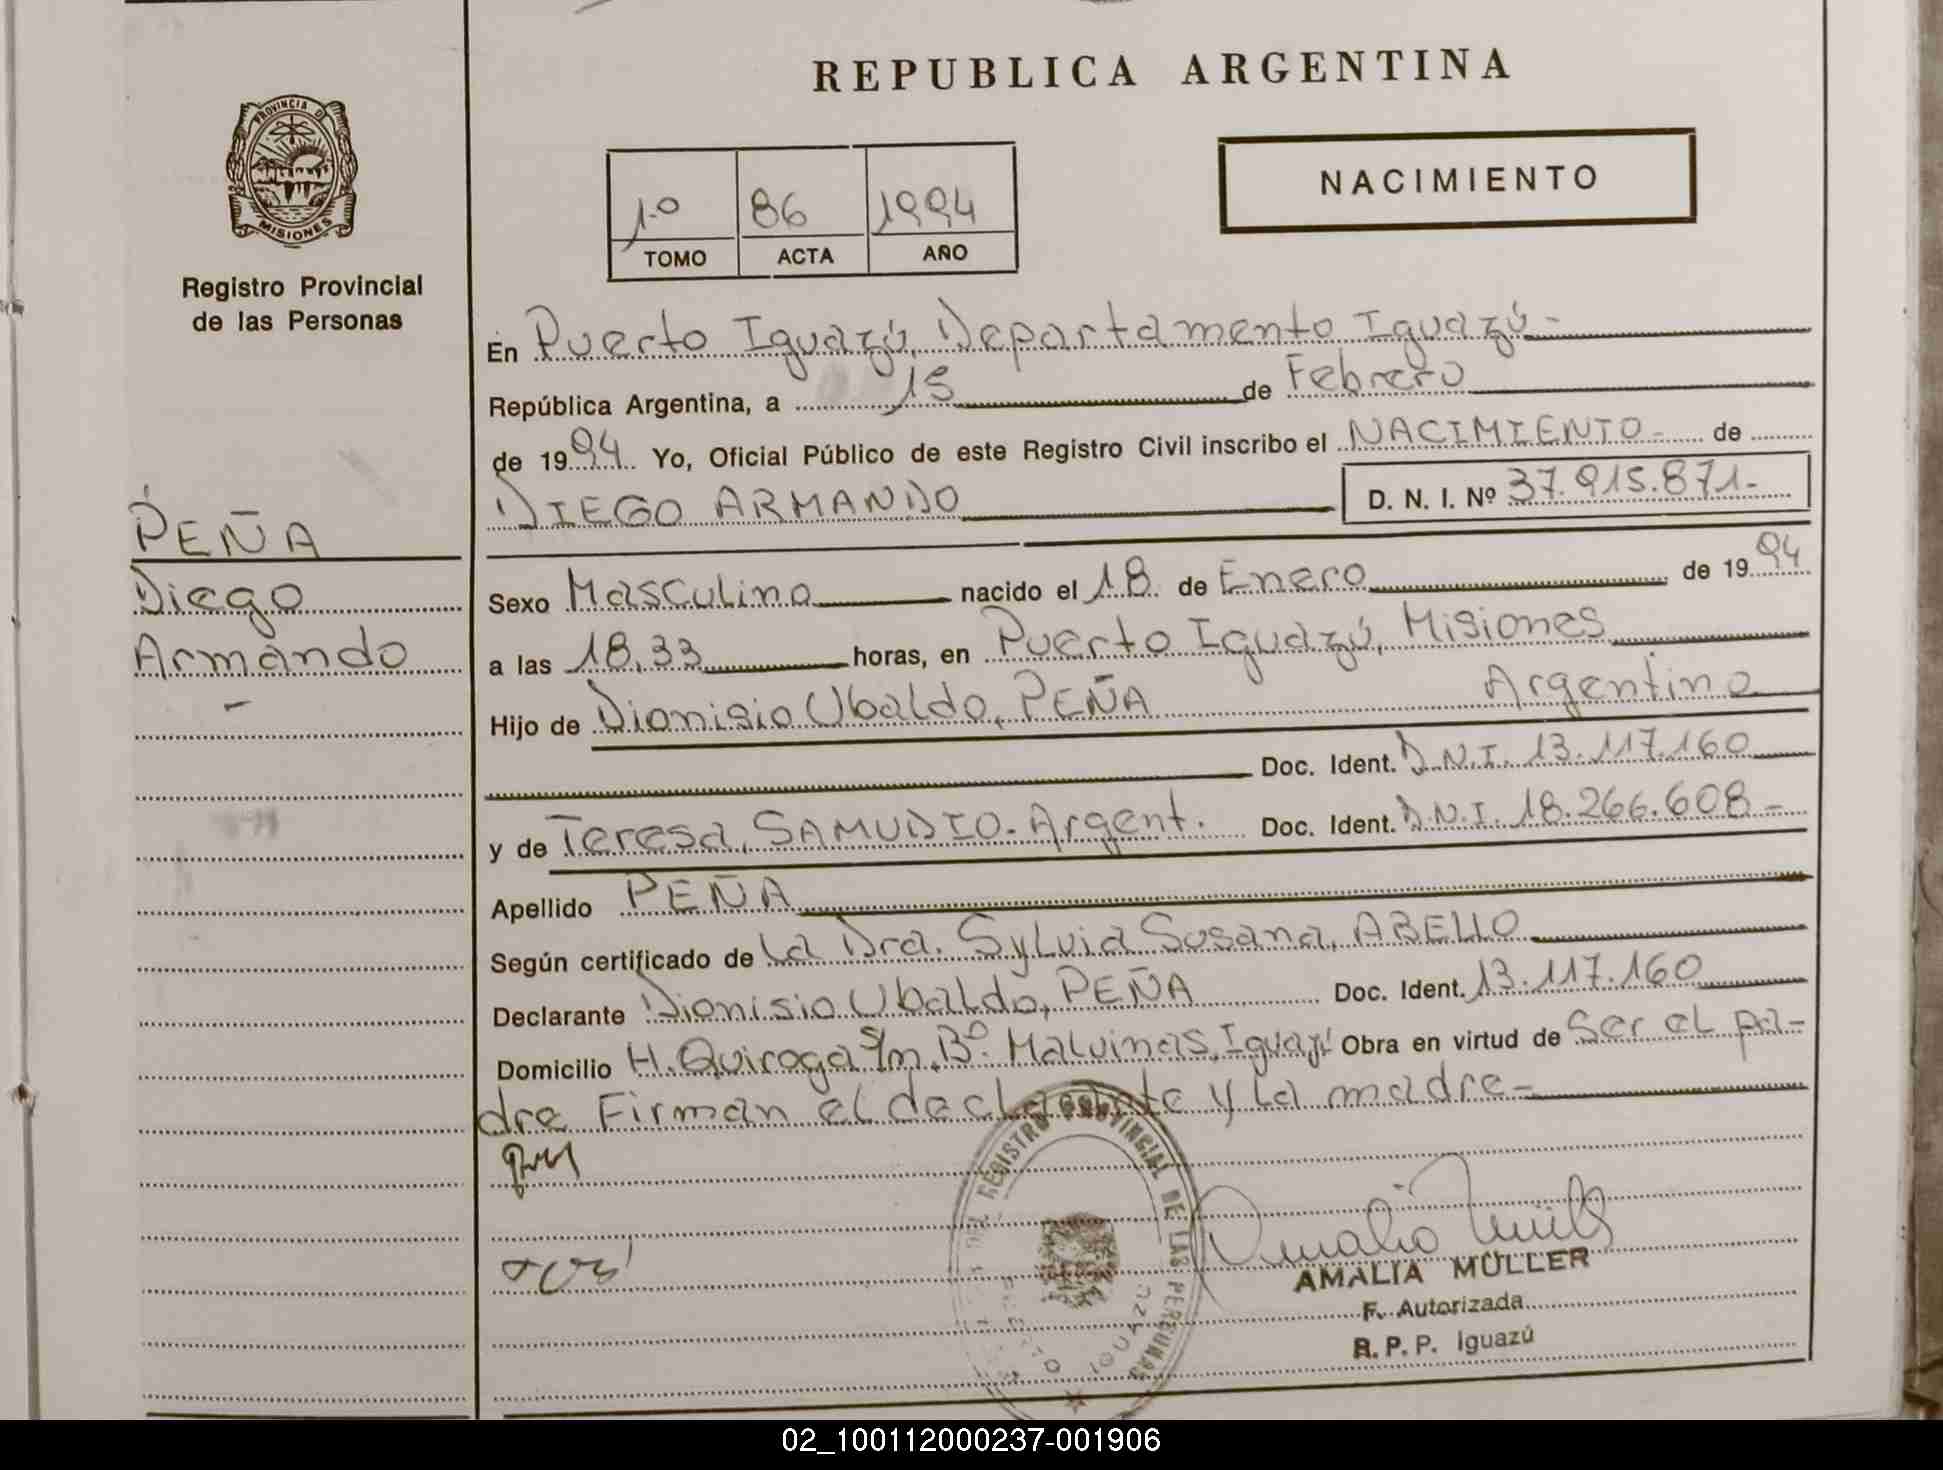 REPUBLICA ARGENTINA
PROVINCIA D
MISIONES
Registro Provincial
de las Personas
NACIMIENTO
1º 86 1994
TOMO ACTA AÑO
En Puerto Iguazú, Departamento Iguazú-
República Argentina, a 15 de Febrero
de 1994 Yo, Oficial Público de este Registro Civil inscribo el NACIMIENTO- de
DIEGO ARMANDO D. N. I. Nº 37.915.871.-
PEÑA
Diego
Armando
-
Sexo Masculino nacido el 18 de Enero de 1994
a las 18,33 horas, en Puerto Iguazú, Misiones
Hijo de Dionisio Ubaldo, PEÑA Argentino
Doc. Ident. D.N.I. 13.117.160
y de Teresa, SAMUDIO- Argent. Doc. Ident. D.N.I. 18.266.608-
Apellido PEÑA
Según certificado de La Dra. Sylvia Susana, ABELLO
Declarante Dionisio Ubaldo, PEÑA Doc. Ident. 13.117.160
Domicilio H. Quiroga S/n, Bº. Malvinas, Iguazú Obra en virtud de Ser el pa-
dre Firman el declarante y la madre-
REGISTRO PROVINCIAL DE LAS PERSONAS
AMALIA MÜLLER
F. Autorizada
R. P. P. Iguazú
02_100112000237-001906